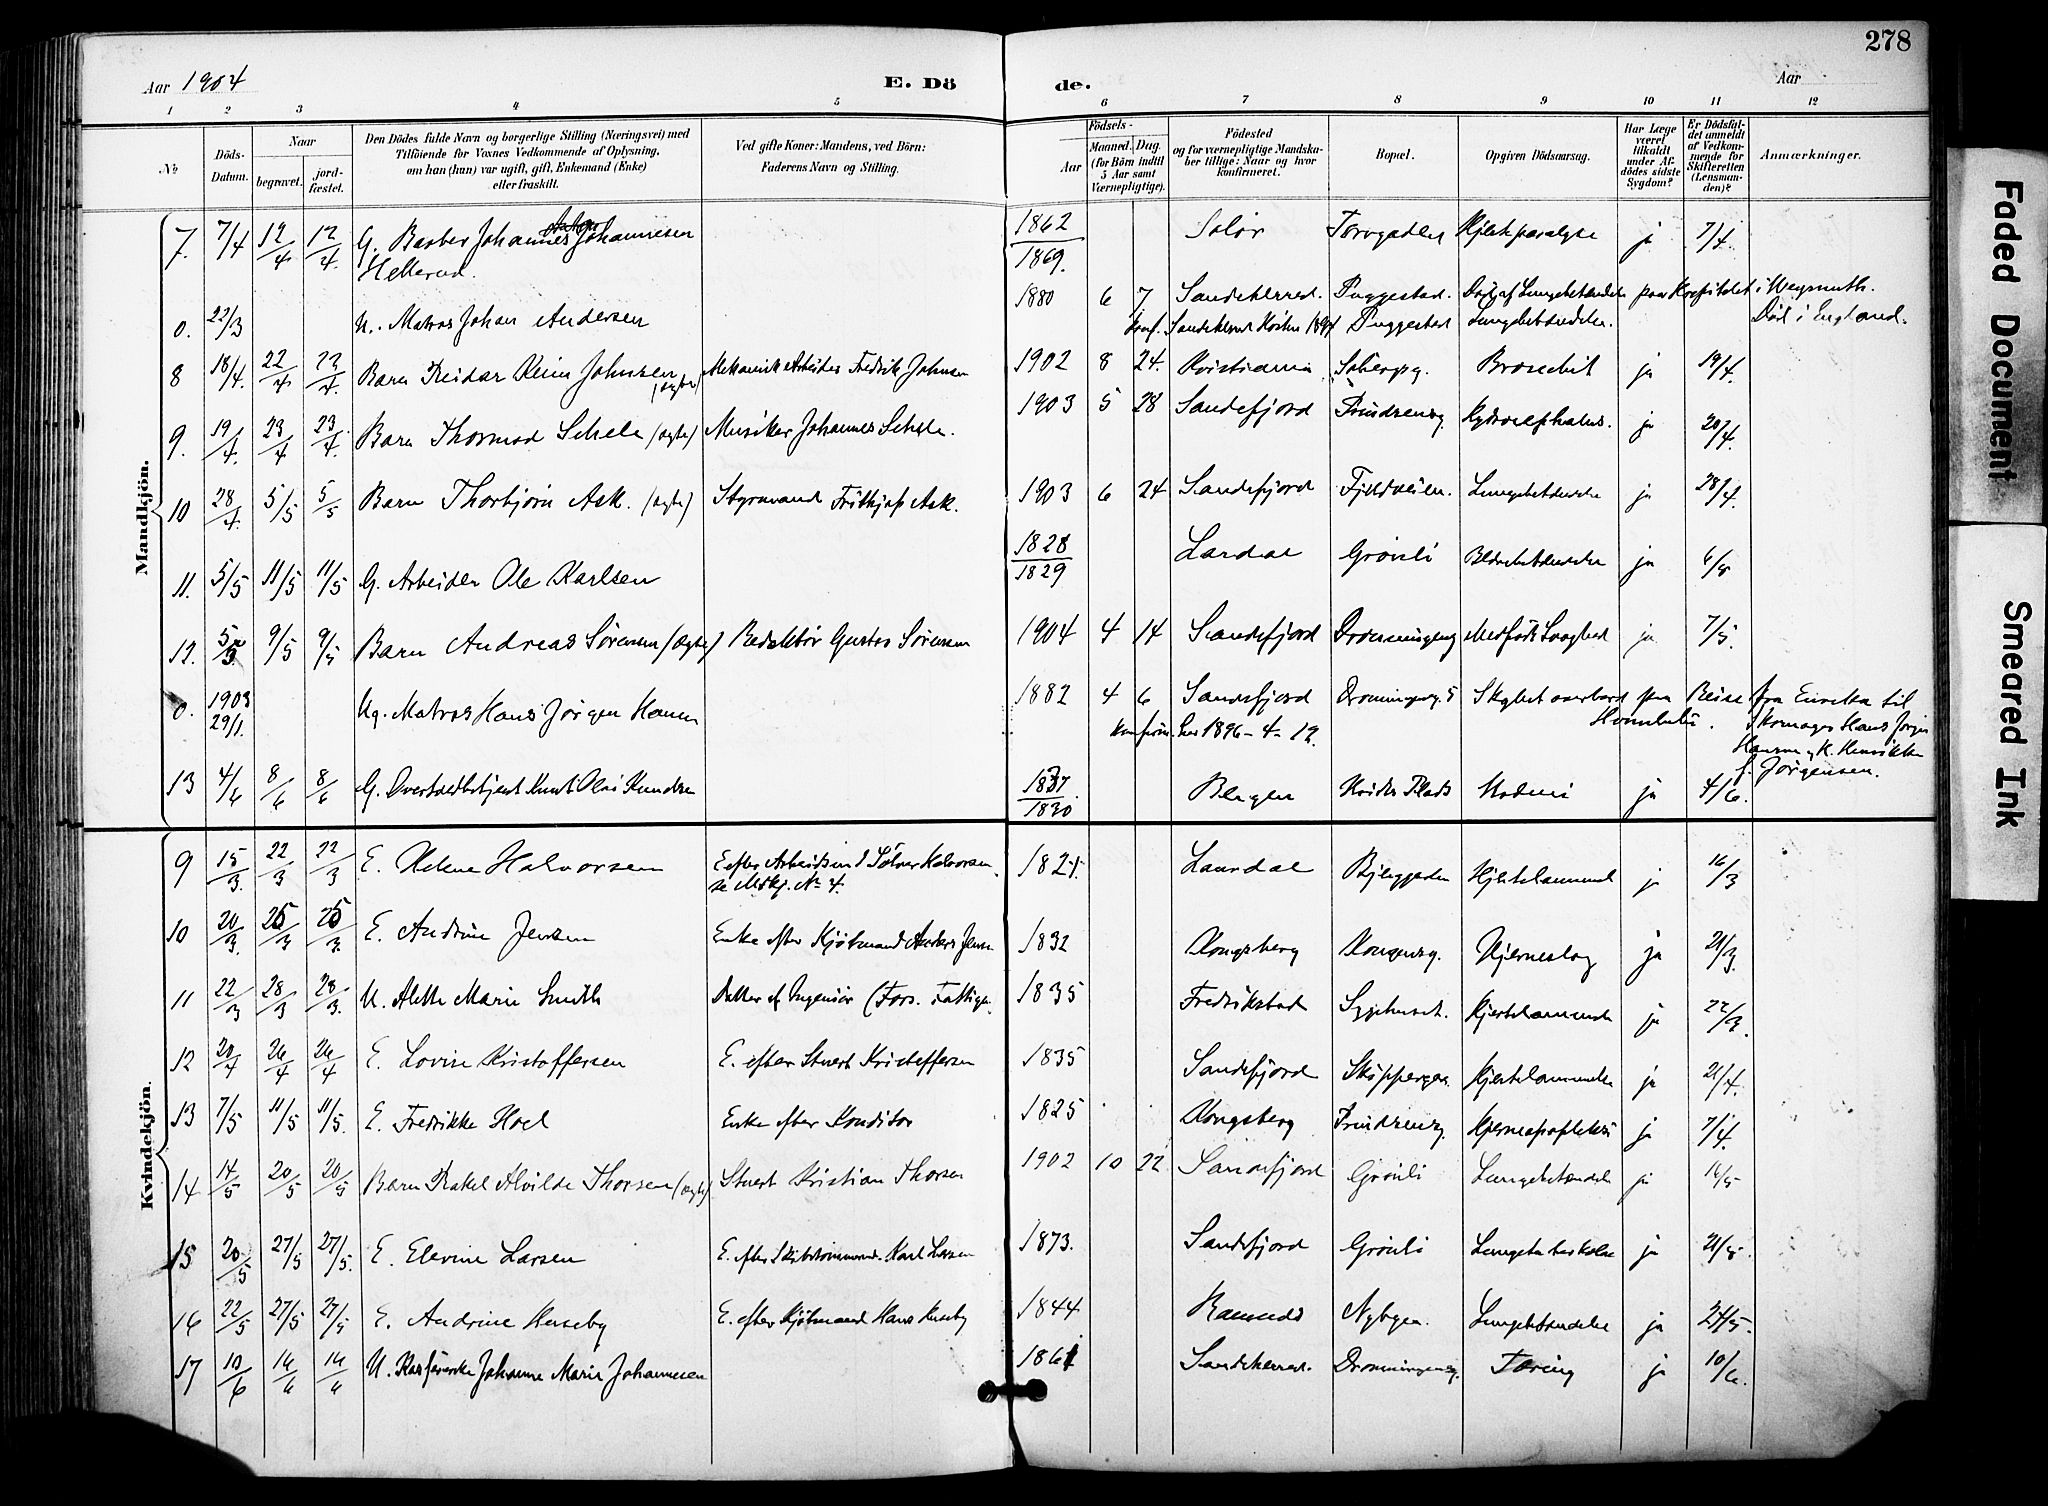 278
Aar 1904
E. Dö
de.
Aar
1 2 3 4 5 6 7 8 9 10 11 12
No
Döds-
Datum.
Naar
begravet.
jord-
fæstet.
Den Dödes fulde Navn og borgerlige Stilling (Næringsvei) med
Tilföiende for Voxnes Vedkommende af Oplysning,
om han (hun) var ugift, gift, Enkemand (Enke)
eller fraskilt.
Ved gifte Koner: Mandens, ved Börn:
Faderens Navn og Stilling.
Födsels-
Aar
Maaned. Dag.
(for Börn indtil
5 Aar samt
Værnepligtige).
Födested
og for værnepligtige Mandska-
ber tillige: Naar og hvor
konfirmeret.
Bopæl.
Opgiven Dödsaarsag.
Har Læge
været
tilkaldt
under Af-
dödes sidste
Sygdom?
Er Dödsfal-
det anmeldt
af Vedkom-
mende for
Skifteretten
(Lensman-
den)?
Anmærkninger.
Mandkjön.
7. 7/4 12/4 12/4 G. Barber Johannes Johannesen 1862/1869. Solør Torvgaden Hjerteparalyse ja 7/4.
Hellerud.
0. 22/3 U. Matros Johan Andersen 1880 6 7 Sandeherred. Puggestad. Død af Lungebetændelse paa Hospitalet i Weymuth.
Konf. Sandeherred Puggestad Lungebetændelse. Død i England.
8 18/4. 22/4 22/4 Barn Reidar Johnsen (ægte) Mekanisk Arbeider Fredrik Johnsen 1902 8 24. Kristiania ja 19/4.
9. 19/4. 23/4 23/4. Barn Thormod Schele (ægte) Musiker Johannes Schele. 1903 5 28 Sandefjord Prindsensg. Hydrocephalus. ja 20/4.
10 28/4. 5/5 5/5 Barn Thorbjørn Ask. (ægte) Styrmand Frithjof Ask. 1903 6 24 Sandefjord Fjeldveien. Lungebetændelse ja 28/4.
11. 5/5 11/5 11/5 G. Arbeider Ole Karlsen 1828/1829 Lardal Grønli Blærebetændelse ja 6/5
12. 5/5 9/5 9/5 Barn Andreas Sørensen (ægte) Redaktør Gustav Sørensen 1904 4 14 Sandefjord Dronningensg Medfødt Svaghed ja 7/5.
0. 1903 29/1. Ug. Matros Hans Jørgen Hansen 1882 4 6 Sandefjord Dronningensg. 5 Skyllet overbord paa Reise fra Eureka til
Konfirm. her 1896-4-12. Honolulu. Skomager Hans Jørgen
Hansen, K. Henrikke
f. Jørgensen.
13 4/6 8/6 8/6 G. Overtoldbetjent Knut Olai Knudsen 1837/1830 Bergen Hvidts Plads ja 4/6.
Kvindekjön.
9 15/3. 22/3 22/3 E. Helene Halvorsen E efter Arbeidsmand Sølver Halvorsen 1821. Laurdal Bjerggaden Hjertelammelse ja 16/3
se Mdkj. No 4.
10 20/3. 25/3 25/3. E. Andrine Jensen Enke efter Kjøbmand Anders Jensen 1832 Kongsberg Kongensg. Hjerneslag ja 21/3.
11 22/3 28/3 28/3. U. Alette Marie Smith Datter af Ingeniør (Fors. Fattigv. 1835 Fredrikstad Sygehuset. Hjertelammelse ja 22/3.
12 20/4 26/4 26/4 E. Lovise Kristoffersen E. efter Stuert Kristoffersen 1835 Sandefjord Skippergd. Hjertelammelse ja 21/4.
13 7/5 11/5 11/5. E. Fredrikke Hoel Enke efter Konditor 1825 Kongsberg Prindsensg. Hjerneapoplexi ja 7/4.
14 14/5 20/5 20/5 Barn Rakel Alvilde Thorsen (ægte) Stuert Kristian Thorsen 1902 10 22 Sandefjord Grønli Lungebetændelse ja 16/5
15 20/5 27/5 27/5. E. Elevine Larsen E. efter Skibstømmermd. Karl Larsen 1873. Sandefjord Grønli Lungetuberkulose ja 21/5.
16 22/5 27/5 27/5 E. Andrine Huseby E. efter Kjøbmand Hans Huseby 1844 Ramnæs Nybyen. Lungebetændelse ja 24/5.
17 10/6 14/6 14/6 U. Johanne Marie Johannesen 1861 Sandeherred. Dronningensg. Tæring ja 10/6.
Faded Document
Smeared Ink